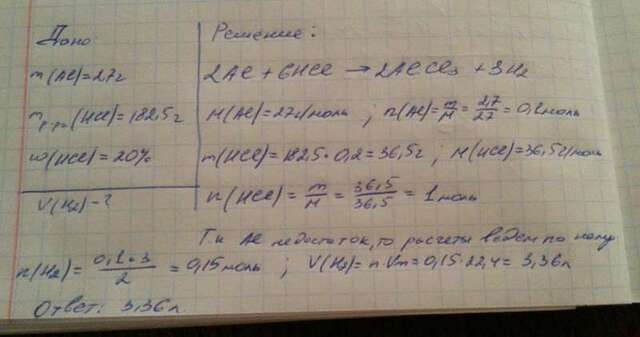 Дано:
m(Al)=2,7г
mр-ра(HCl)=182,5г
w(HCl)=20%
V(H2)-?
Решение:
2Al + 6HCl → 2AlCl3 + 3H2
M(Al)=27г/моль ; n(Al)= m/M = 2,7/27 = 0,1моль
m(HCl)=182,5·0,2=36,5г ; M(HCl)=36,5г/моль
n(HCl) = m/M = 36,5/36,5 = 1моль
Т.к Al недостаток, то расчеты ведем по нему
n(H2)= 0,1·3/2 = 0,15моль ; V(H2)=n·Vm=0,15·22,4=3,36л
Ответ: 3,36л